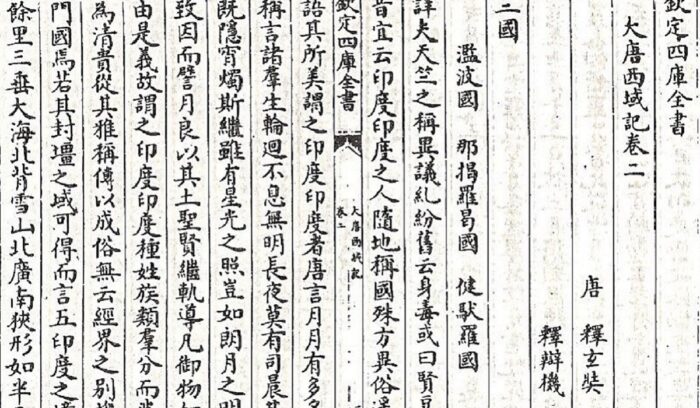 欽定四庫全書
大唐西域記卷二
唐 釋玄奘
釋辯機
三國
濫波國 那揭羅曷國 健馱羅國
詳夫天竺之稱異議糾紛舊云身毒或曰賢豆
音宜云印度印度之人隨地稱國殊方異俗遙
欽定四庫全書
大唐西域記
卷二
語其所美謂之印度印度者唐言月月有多名
稱言諸羣生輪迴不息無明長夜莫有司晨其
既隱宵燭斯繼雖有星光之照豈如朗月之明
致因而譬月良以其土聖賢繼軌導凡御物如
由是義故謂之印度印度種姓族類羣分而
為清貴從其雅稱傳以成俗無云經界之別
門國焉若其封壃之域可得而言五印度之境
餘里三垂大海北背雪山北廣南狹形如半